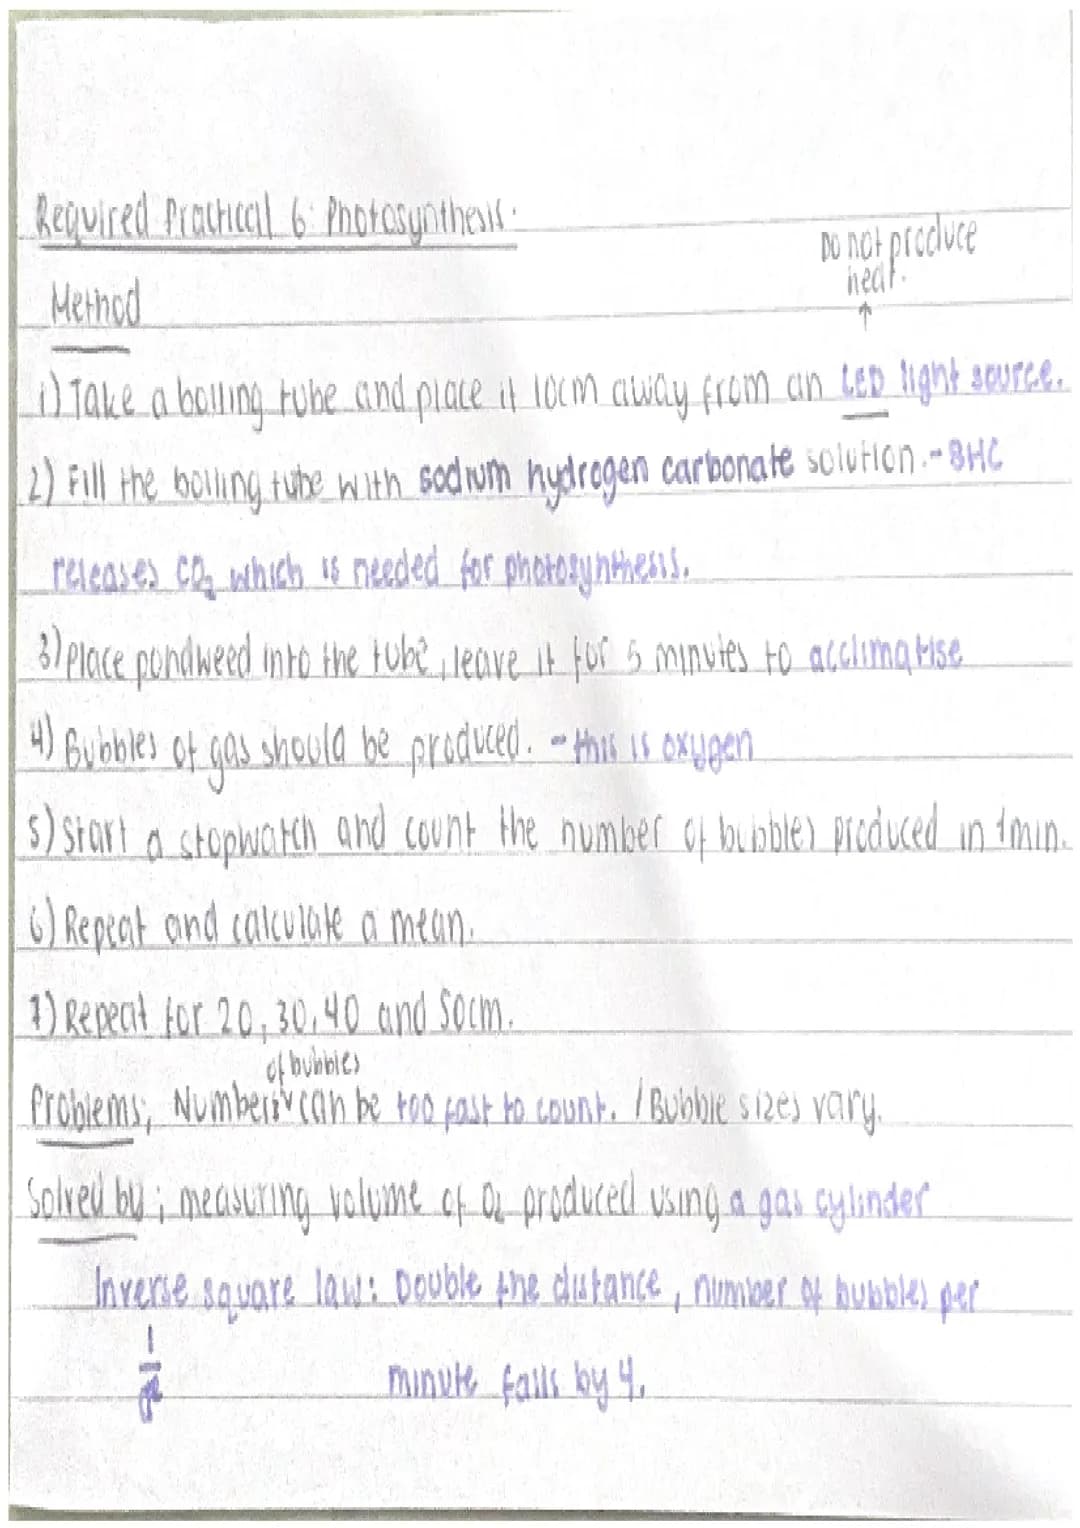 Required Practical 6: Photosynthesis.
Do not produce
heat.
↑
Method
1) Take a boiling tube and place it 10cm away from an LED light source.
2) Fill the boiling tube with sodium hydrogen carbonate solution. - SHC
releases CO₂ which is needed for photosynthesis.
3) Place pondweed into the tube, leave it for 5 minutes to acclimatise
4) Bubbles of gas should be produced. - this is oxygen
5) Start a stopwatch and count the number of bubbles produced in 1min.
6) Repeat and calculate a mean.
7) Repeat for 20, 30, 40 and 50cm.
of bubbles
Problems; Numbers can be too fast to count. / Bubble sizes vary.
Solved by; measuring volume of O₂ produced using a gas cylinder
Inverse square law: Double the distance, number of bubbles per
minute falls by 4.